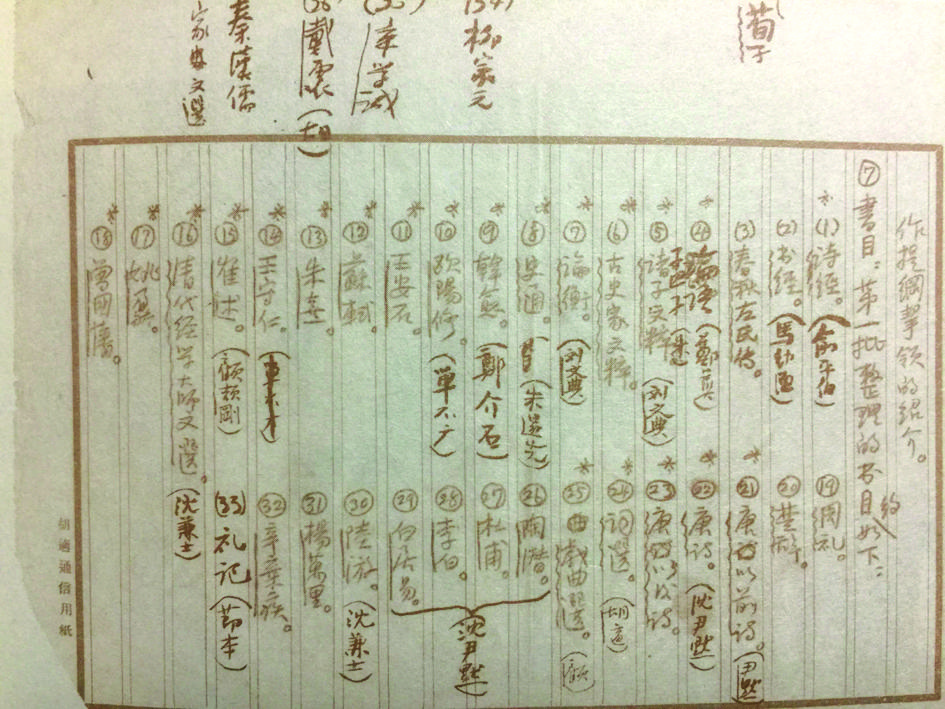 荀子
(34) 柳宗元
(35) 章学诚
(36) 戴震 (胡)
秦漢儒
家安文選
作提綱挈領的紹介。
⑦ 書目：第一批整理的书目約如下：
(1) 詩經。 (俞平伯)
(2) 书经。
(3) 春秋左氏传。
④ 論語 (鄭奠)
⑤ 諸子文粹 (刘文典)
⑥ 古史家文粹。
⑦ 論衡。 (刘文典)
⑧ 史通。 (朱逷先)
⑨ 韓愈。 (鄭介石)
⑩ 歐陽修。 (單不广)
⑪ 王安石。
⑫ 蘇軾。
⑬ 朱熹。
⑭ 王守仁。
⑮ 崔述。 (顧頡剛)
⑯ 清代经学大师文選。 (沈兼士)
⑰ 姚鼐。
⑱ 曾國藩。
⑲ 周礼。
⑳ 楚辞。
㉑ 唐以前詩。 (尹默)
㉒ 唐詩。 (沈尹默)
㉓ 唐以后詩。
㉔ 詞選。 (胡適)
㉕ 曲戲曲選。 (顧)
㉖ 陶潛。
㉗ 杜甫。
㉘ 李白。
㉙ 白居易。
(沈尹默)
㉚ 陸游。 (沈兼士)
㉛ 楊萬里。
㉜ 辛棄疾。
(33) 礼记 (節本)
胡適通信用紙